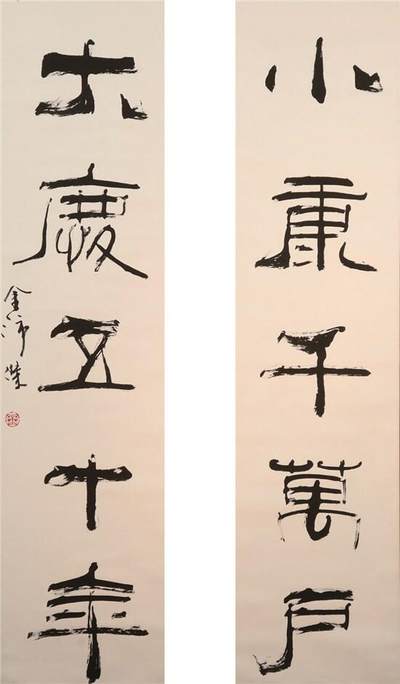 小康千萬户
大慶五十年
金沛